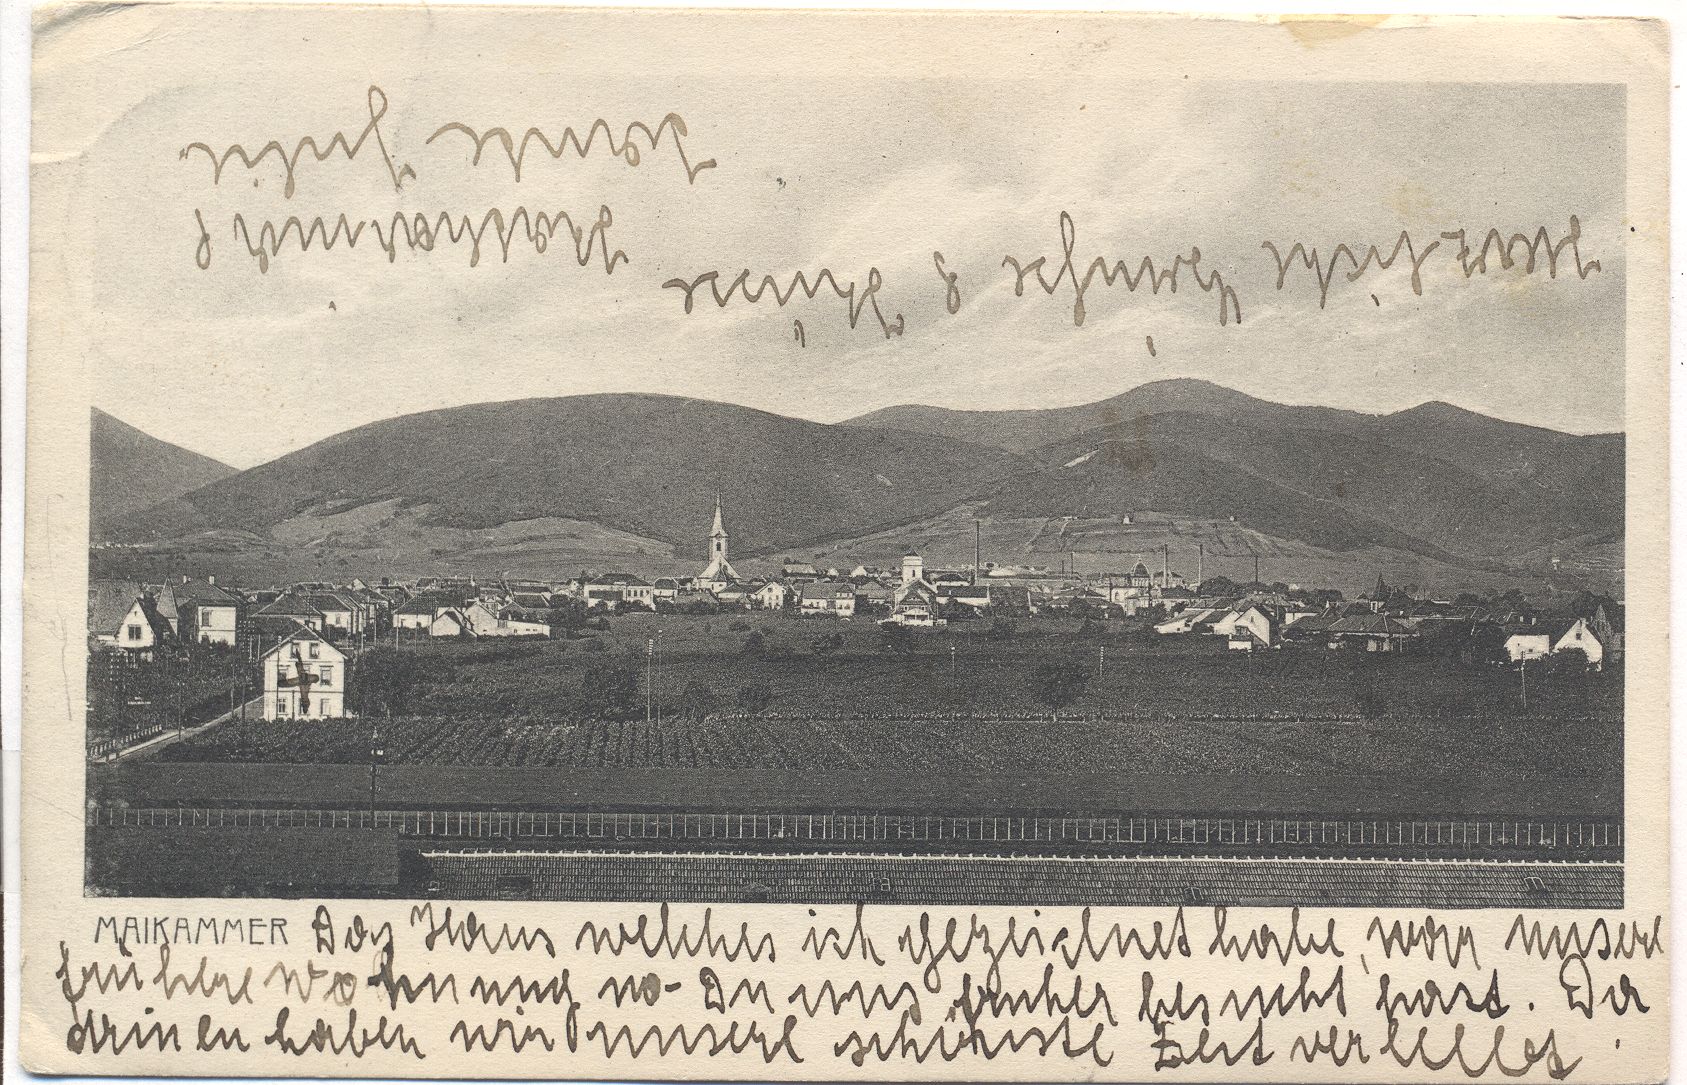 MAIKAMMER Das Haus welches ich gezeichnet habe, war unsere
frühere Wohnung wo Du uns früher besucht hast. Da
drinen haben wir unsere schönste Zeit
Grüße & Küsse
Tante